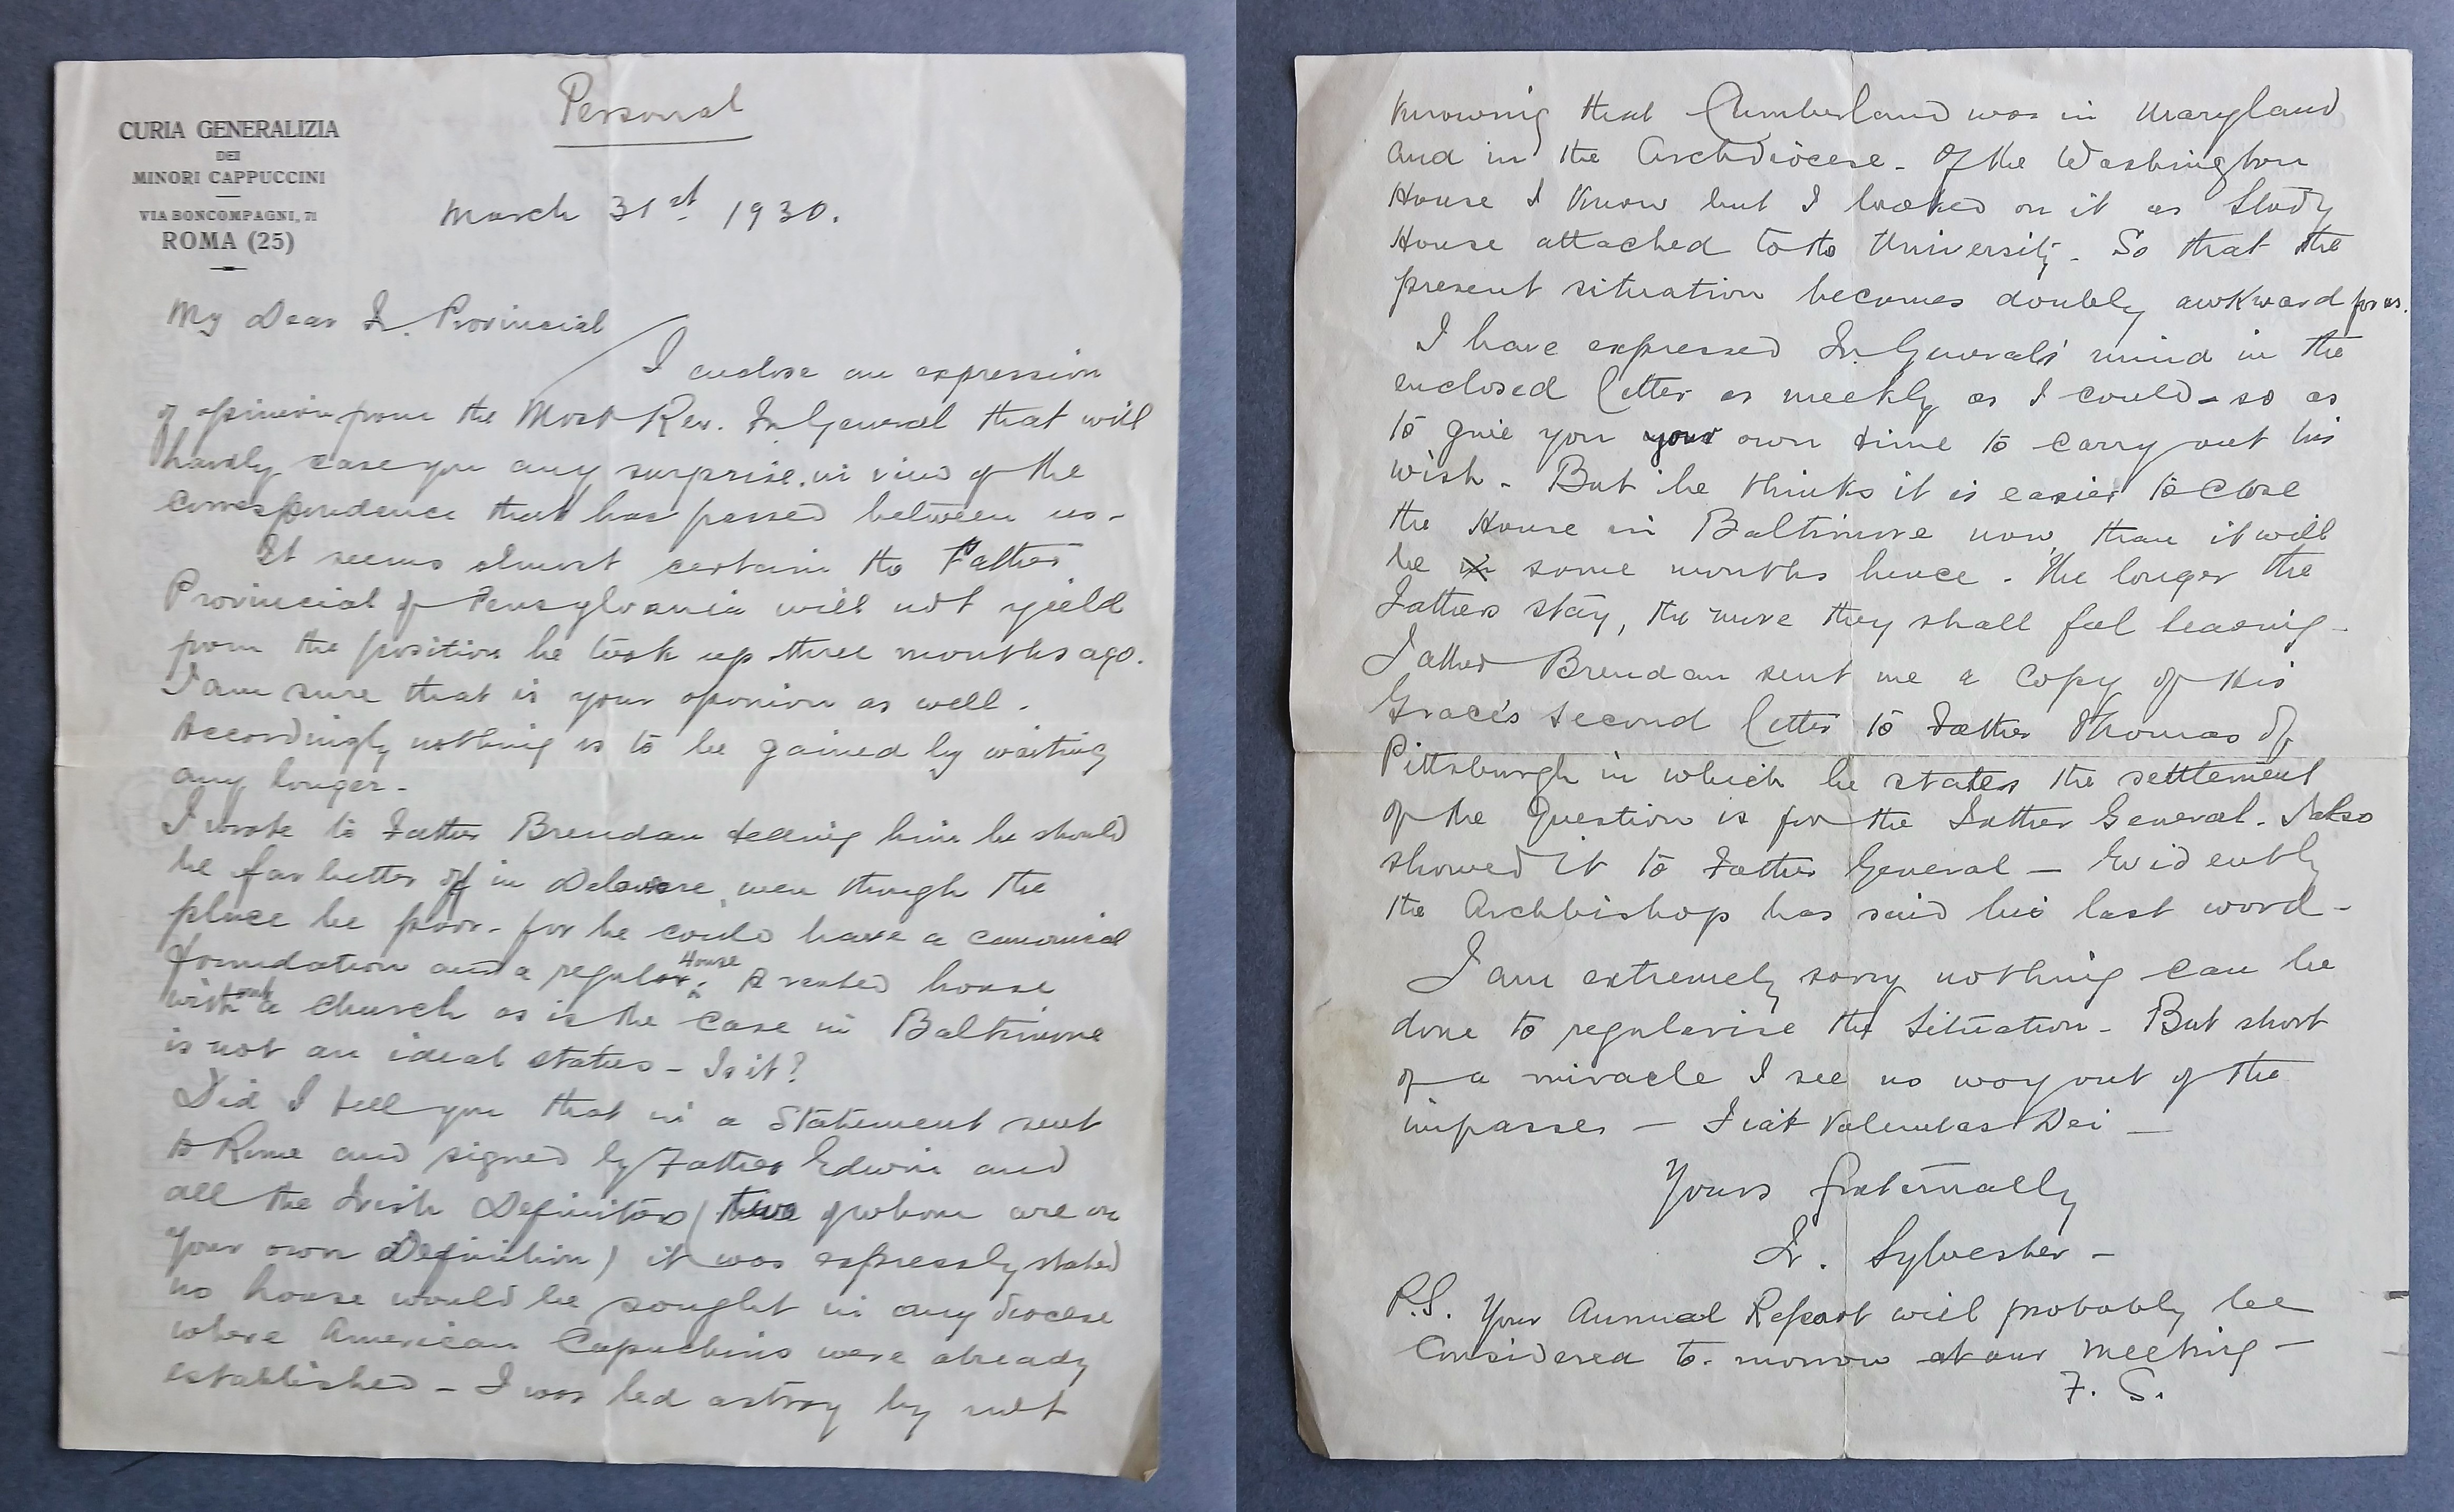 Personal
CURIA GENERALIZIA
DEI
MINORI CAPPUCCINI
VIA BONCOMPAGNI, 71
ROMA (25)
March 31st 1930.
My Dear Fr. Provincial
I enclose an expression
of opinion from the Most Rev. Fr General that will
hardly case you any surprise. in view of the
correspondence that has passed between us -
It seems almost certain the Father
Provincial of Pensylvania will not yield
from the position he took up three months ago.
I am sure that is your oponion as well.
Accordingly nothing is to be gained by waiting
any longer -
I wrote to Father Brendan telling him he should
be far better off in Delaware, even though the
place be poor - for he could have a canonical
foundation and a regular House. A rented house
without a church as is the case in Baltimore
is not an ideal status - Is it?
Did I tell you that in a Statement sent
to Rome and signed by Father Edwin and
all the Irish Definitors (two of whom are on
your own Definition) it was expressly stated
no house would be sought in any diocese
where American Capuchins were already
established - I was led astray by not
knowing that Cumberland was in Maryland
and in the Archdiocese - Of the Washington
House I know but I looked on it as Study
House attached to the University - So that the
present situation becomes doubly awkward for us.
I have expressed Fr. General's mind in the
enclosed letter as meekly as I could - so as
to give you your own time to carry out his
wish - But he thinks it is easier to close
the House in Baltimore now, than it will
be some months hence. The longer the
Fathers stay, the more they shall feel leaving -
Father Brendan sent me a copy of His
Grace's second letter to Father Thomas of
Pittsburgh in which he states the settlement
of the Question is for the Father General. I also
showed it to Father General - Evidently
the Archbishop has said his last word -
I am extremely sorry nothing can be
done to regularise the situation - But short
of a miracle I see no way out of the
impasse - Fiat Voluntas Dei -
Yours fraternally
Fr. Sylvester -
P.S. Your Annual Report will probably be
Considered to-morrow at our meeting -
F. S.